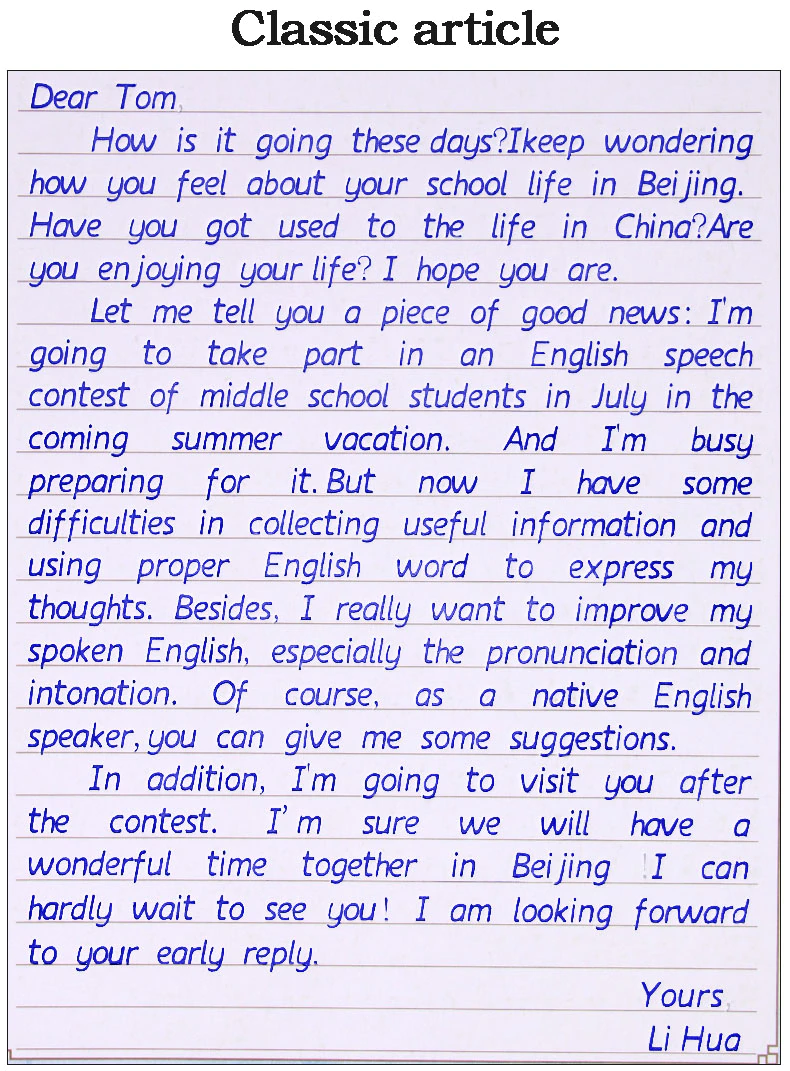 Classic article
Dear Tom,
How is it going these days?Ikeep wondering
how you feel about your school life in Beijing.
Have you got used to the life in China?Are
you enjoying your life? I hope you are.
Let me tell you a piece of good news: I'm
going to take part in an English speech
contest of middle school students in July in the
coming summer vacation. And I'm busy
preparing for it. But now I have some
difficulties in collecting useful information and
using proper English word to express my
thoughts. Besides, I really want to improve my
spoken English, especially the pronunciation and
intonation. Of course, as a native English
speaker, you can give me some suggestions.
In addition, I'm going to visit you after
the contest. I'm sure we will have a
wonderful time together in Beijing !I can
hardly wait to see you! I am looking forward
to your early reply.
Yours,
Li Hua